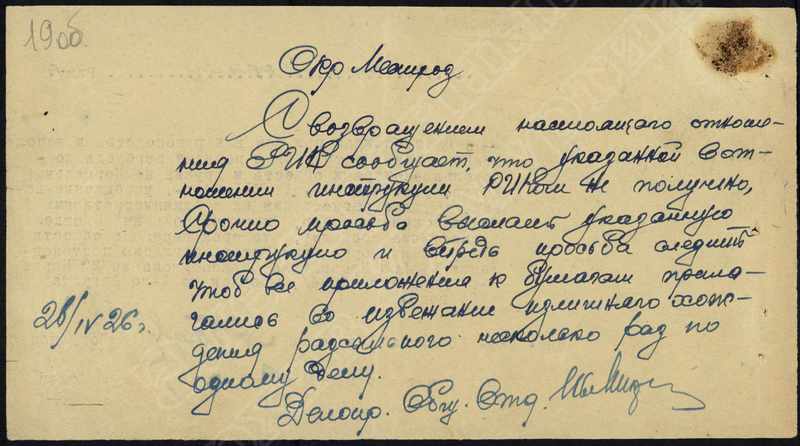 190б.
Окр Менирод
С возвращением настоящего отноше-
ния РИК сообщает, что указанной в от-
ношении инструкции РИКом не получено,
Срочно просьба выслать указанную
инструкцию и впредь просьба следить
чтоб все приложения к бумагам прила-
гались во избежании излишнего хож-
дения рассыльного несколько раз по
одному делу.
28/IV 26 г.
Делопр. Общ. Отд.